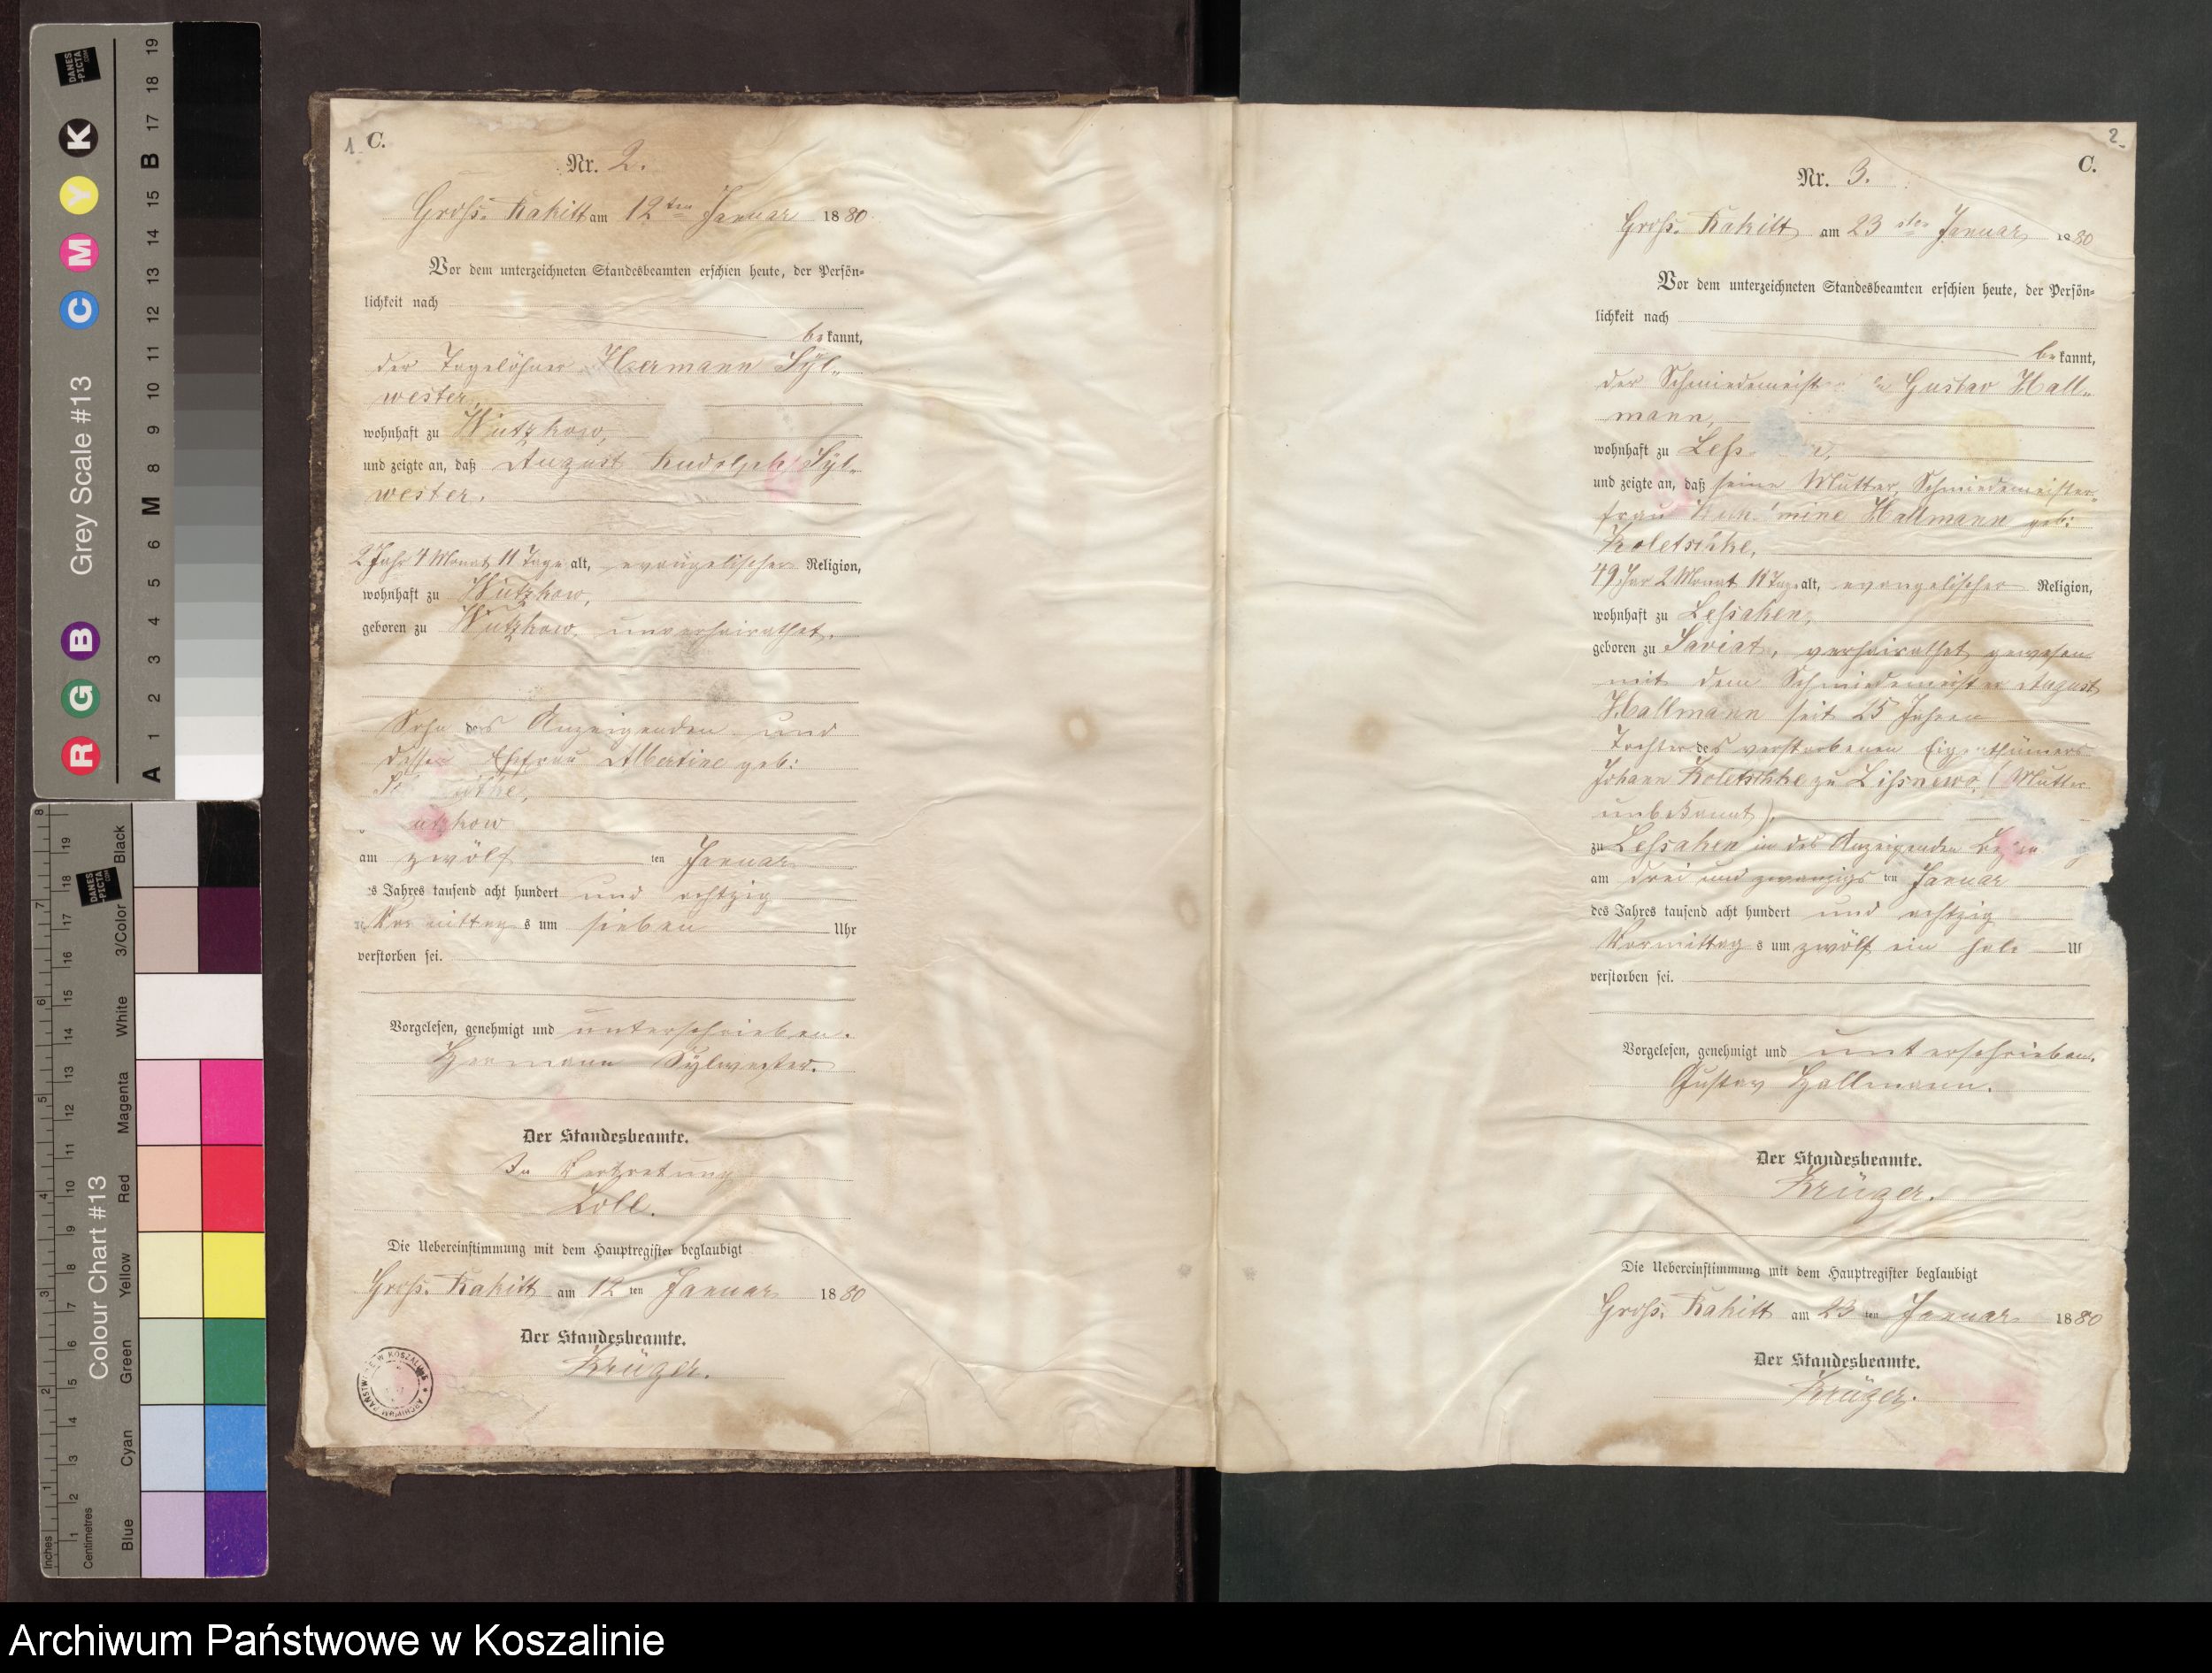 1. C.
Nr. 2.
Groß. Rakitt am 12ten Januar 1880
Vor dem unterzeichneten Standesbeamten erschien heute, der Persön-
lichkeit nach
bekannt,
der Tagelöhner Hermann Syl-
wester,
wohnhaft zu Wutzkow,
und zeigte an, daß August Rudolph Syl-
wester.
2 Jahr 4 Monat 11 Tage alt, evangelischer Religion,
wohnhaft zu Wutzkow,
geboren zu Wutzkow, unverheirathet,
Sohn des Anzeigenden und
dessen Ehefrau Albertine geb:
utzkow
am zwölf ten Januar
es Jahres tausend acht hundert und achtzig
Vormittags um sieben Uhr
verstorben sei.
Vorgelesen, genehmigt und unterschrieben.
Hermann Sylwester.
Der Standesbeamte.
In Vertretung
Loll.
Die Uebereinstimmung mit dem Hauptregister beglaubigt
Groß. Rakitt am 12 ten Januar 1880
Der Standesbeamte.
Krüger.
ARCHIWUM PAŃSTWOWE W KOSZALINIE
2.
C.
Nr. 3.
Groß. Rakitt am 23sten Januar 1880
Vor dem unterzeichneten Standesbeamten erschien heute, der Persön-
lichkeit nach
bekannt,
der Schmiedemeister Gustav Hall-
mann,
wohnhaft zu Less
und zeigte an, daß seine Mutter, Schmiedemeister-
frau Hallmann geb:
Koletschke,
49 Jar 2 Monat 11 Tage alt, evangelischer Religion,
wohnhaft zu Lessaken,
geboren zu Saviat, verheirathet gewesen
mit dem Schmiedemeister August
Hallmann seit 25 Jahren
Tochter des verstorbenen Eigenthümers
Johann Koletschke zu Lissnewo, (Mutter
unbekannt),
zu Lessaken in des Anzeigenden
am drei und zwanzigs ten Januar
des Jahres tausend acht hundert und achtzig
Vormittag s um zwölf ein halb U
verstorben sei.
Vorgelesen, genehmigt und unterschrieben.
Gustav Hallmann.
Der Standesbeamte.
Krüger.
Die Uebereinstimmung mit dem Hauptregister beglaubigt
Groß. Rakitt am 23 ten Januar 1880
Der Standesbeamte.
Krüger.
Grey Scale #13
C M Y K
R G B
A 1 2 3 4 5 6 M 8 9 10 11 12 13 14 15 B 17 18 19
DANES-PICTA.COM
Colour Chart #13
Blue Cyan Green Yellow Red Magenta White 3/Color Black
Inches
Centimetres
Archiwum Państwowe w Koszalinie